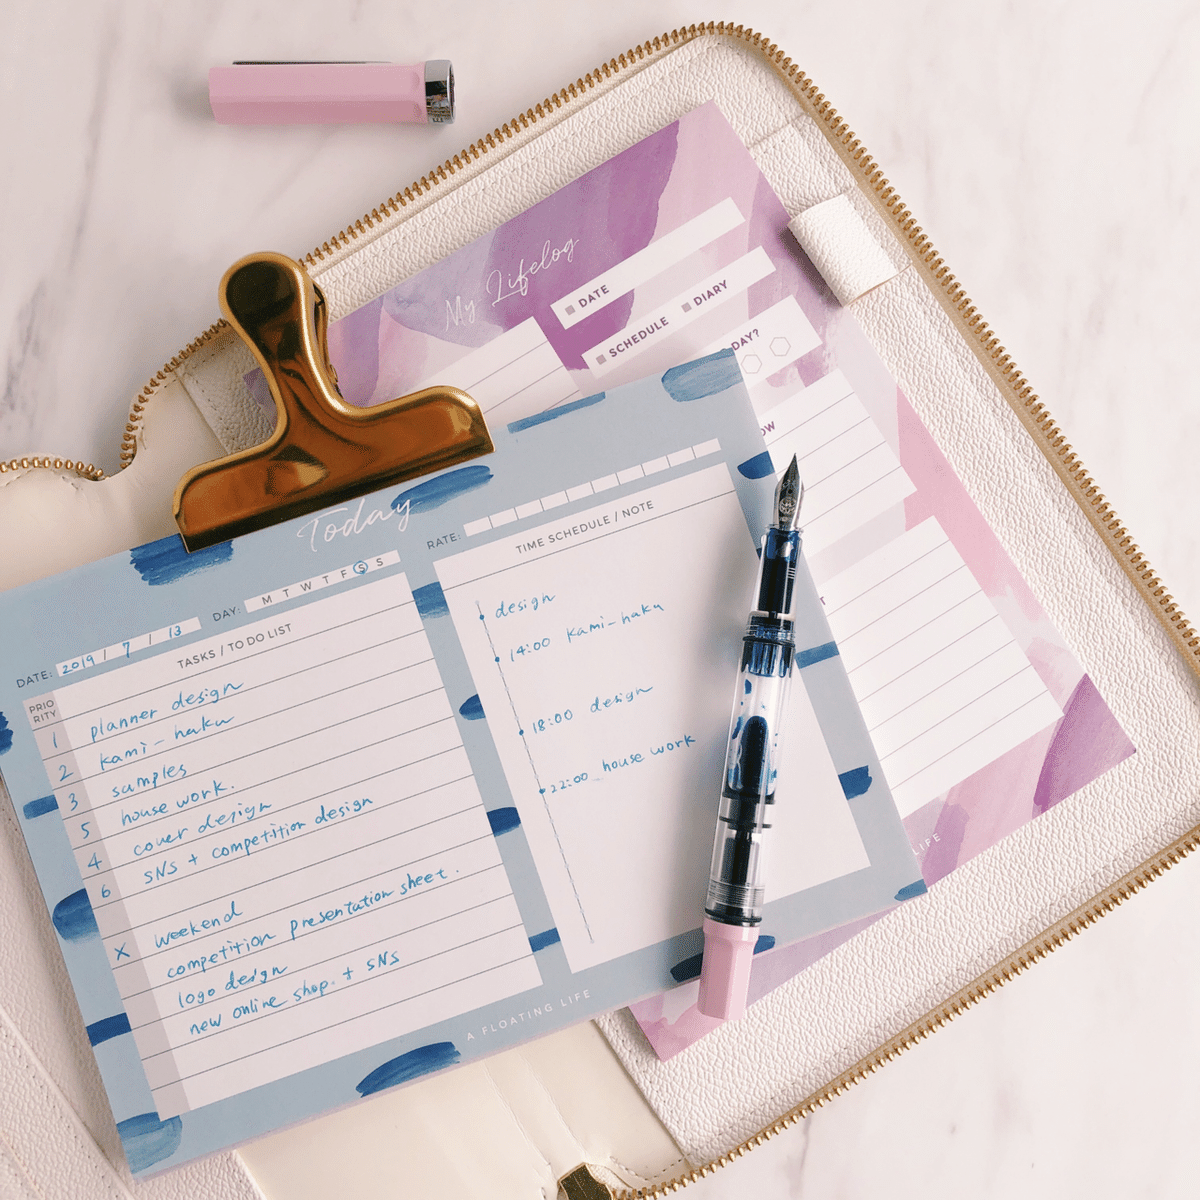 My Lifelog
DATE
SCHEDULE DIARY
DAY?
OW
T
LIFE
Today
DATE: 2019 / 7 / 13
DAY: M T W T F S S
RATE:
TASKS / TO DO LIST
PRIO
RITY
1 planner design
2 kami-haku
3 samples
5 house work.
4 cover design
6 SNS + competition design
weekend
X competition presentation sheet.
logo design
new online shop. + SNS
TIME SCHEDULE / NOTE
design
14:00 kami-haku
18:00 design
22:00 house work
A FLOATING LIFE